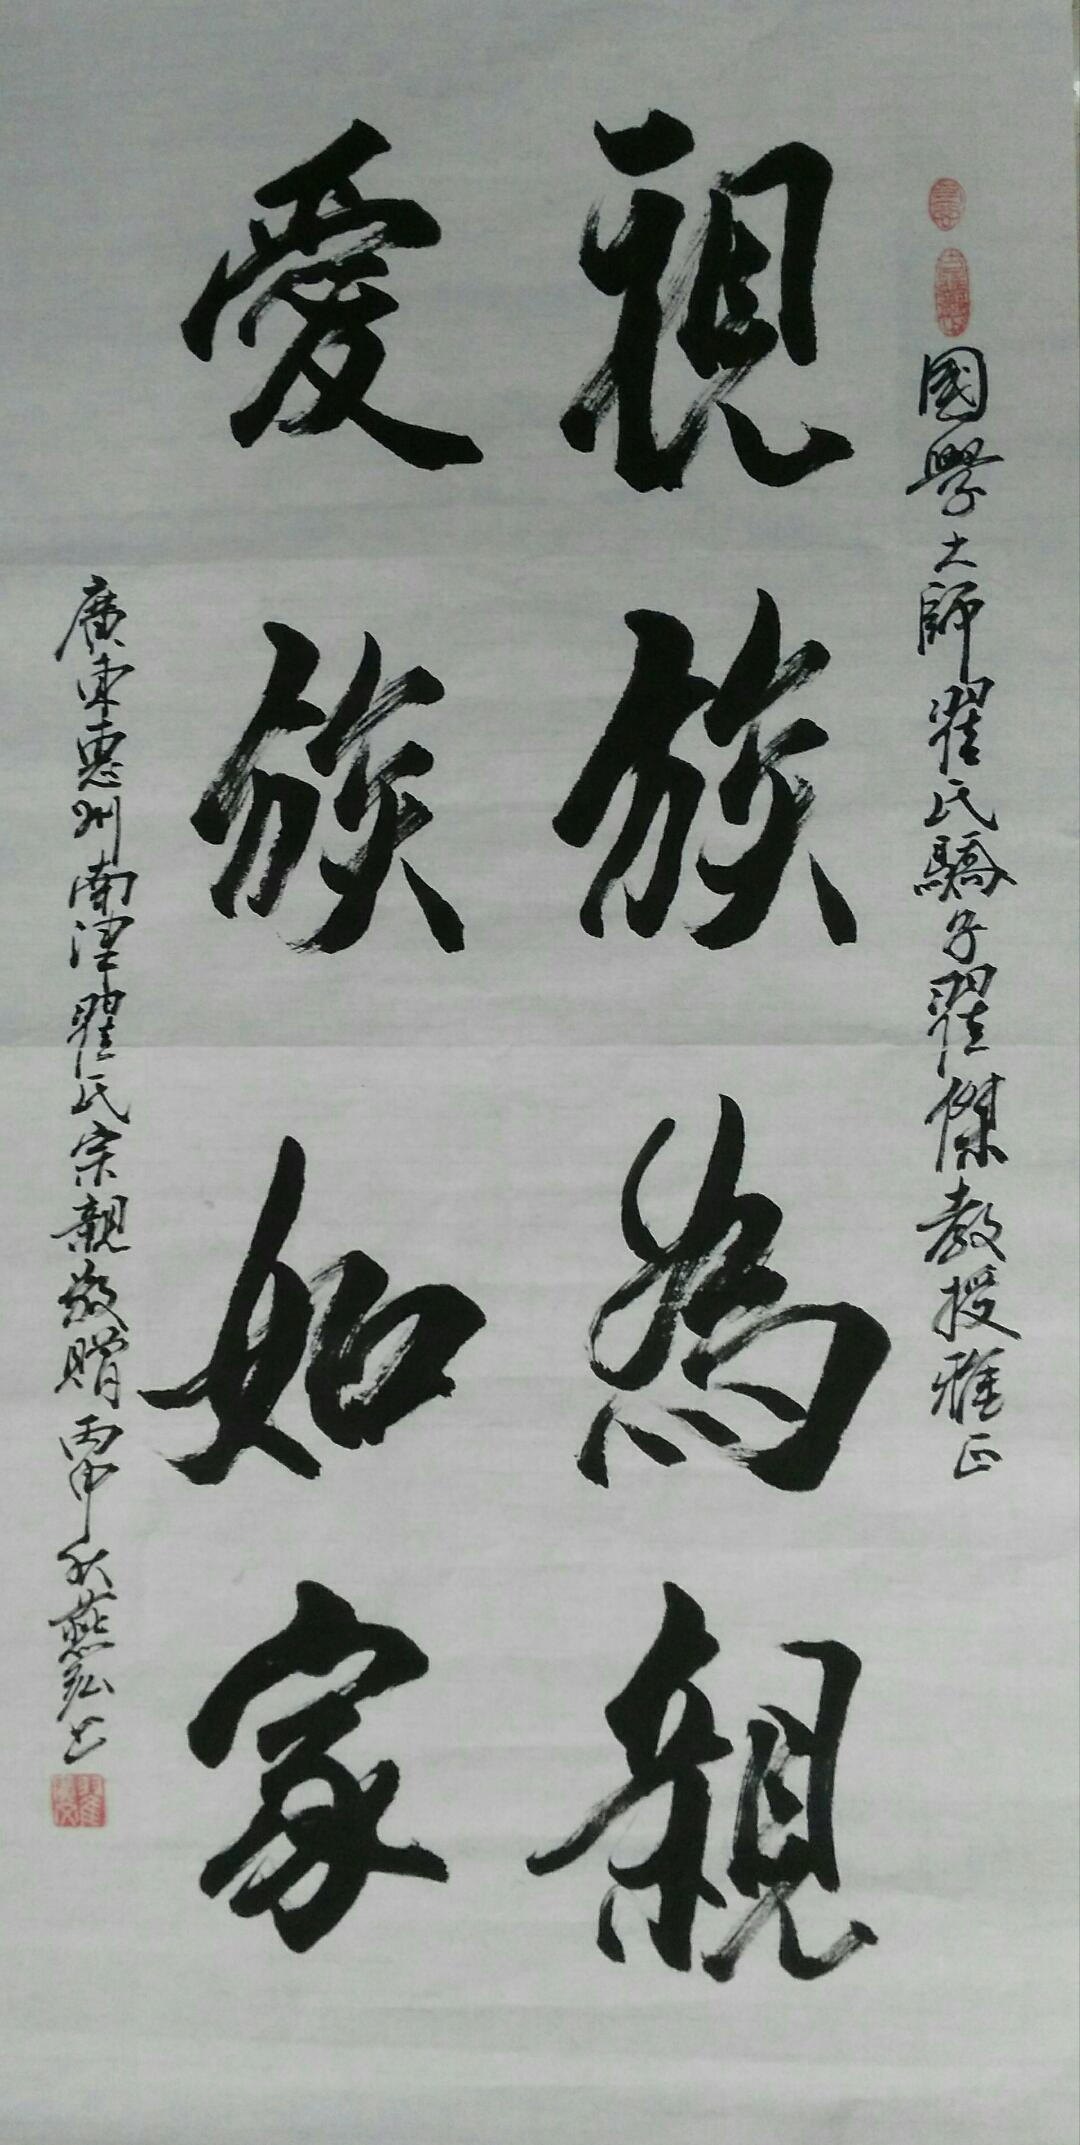 國學大師翟氏驕子翟傑教授雅正
視族為親
愛族如家
廣東惠州南津翟氏宗親敬贈丙申秋燕弘书